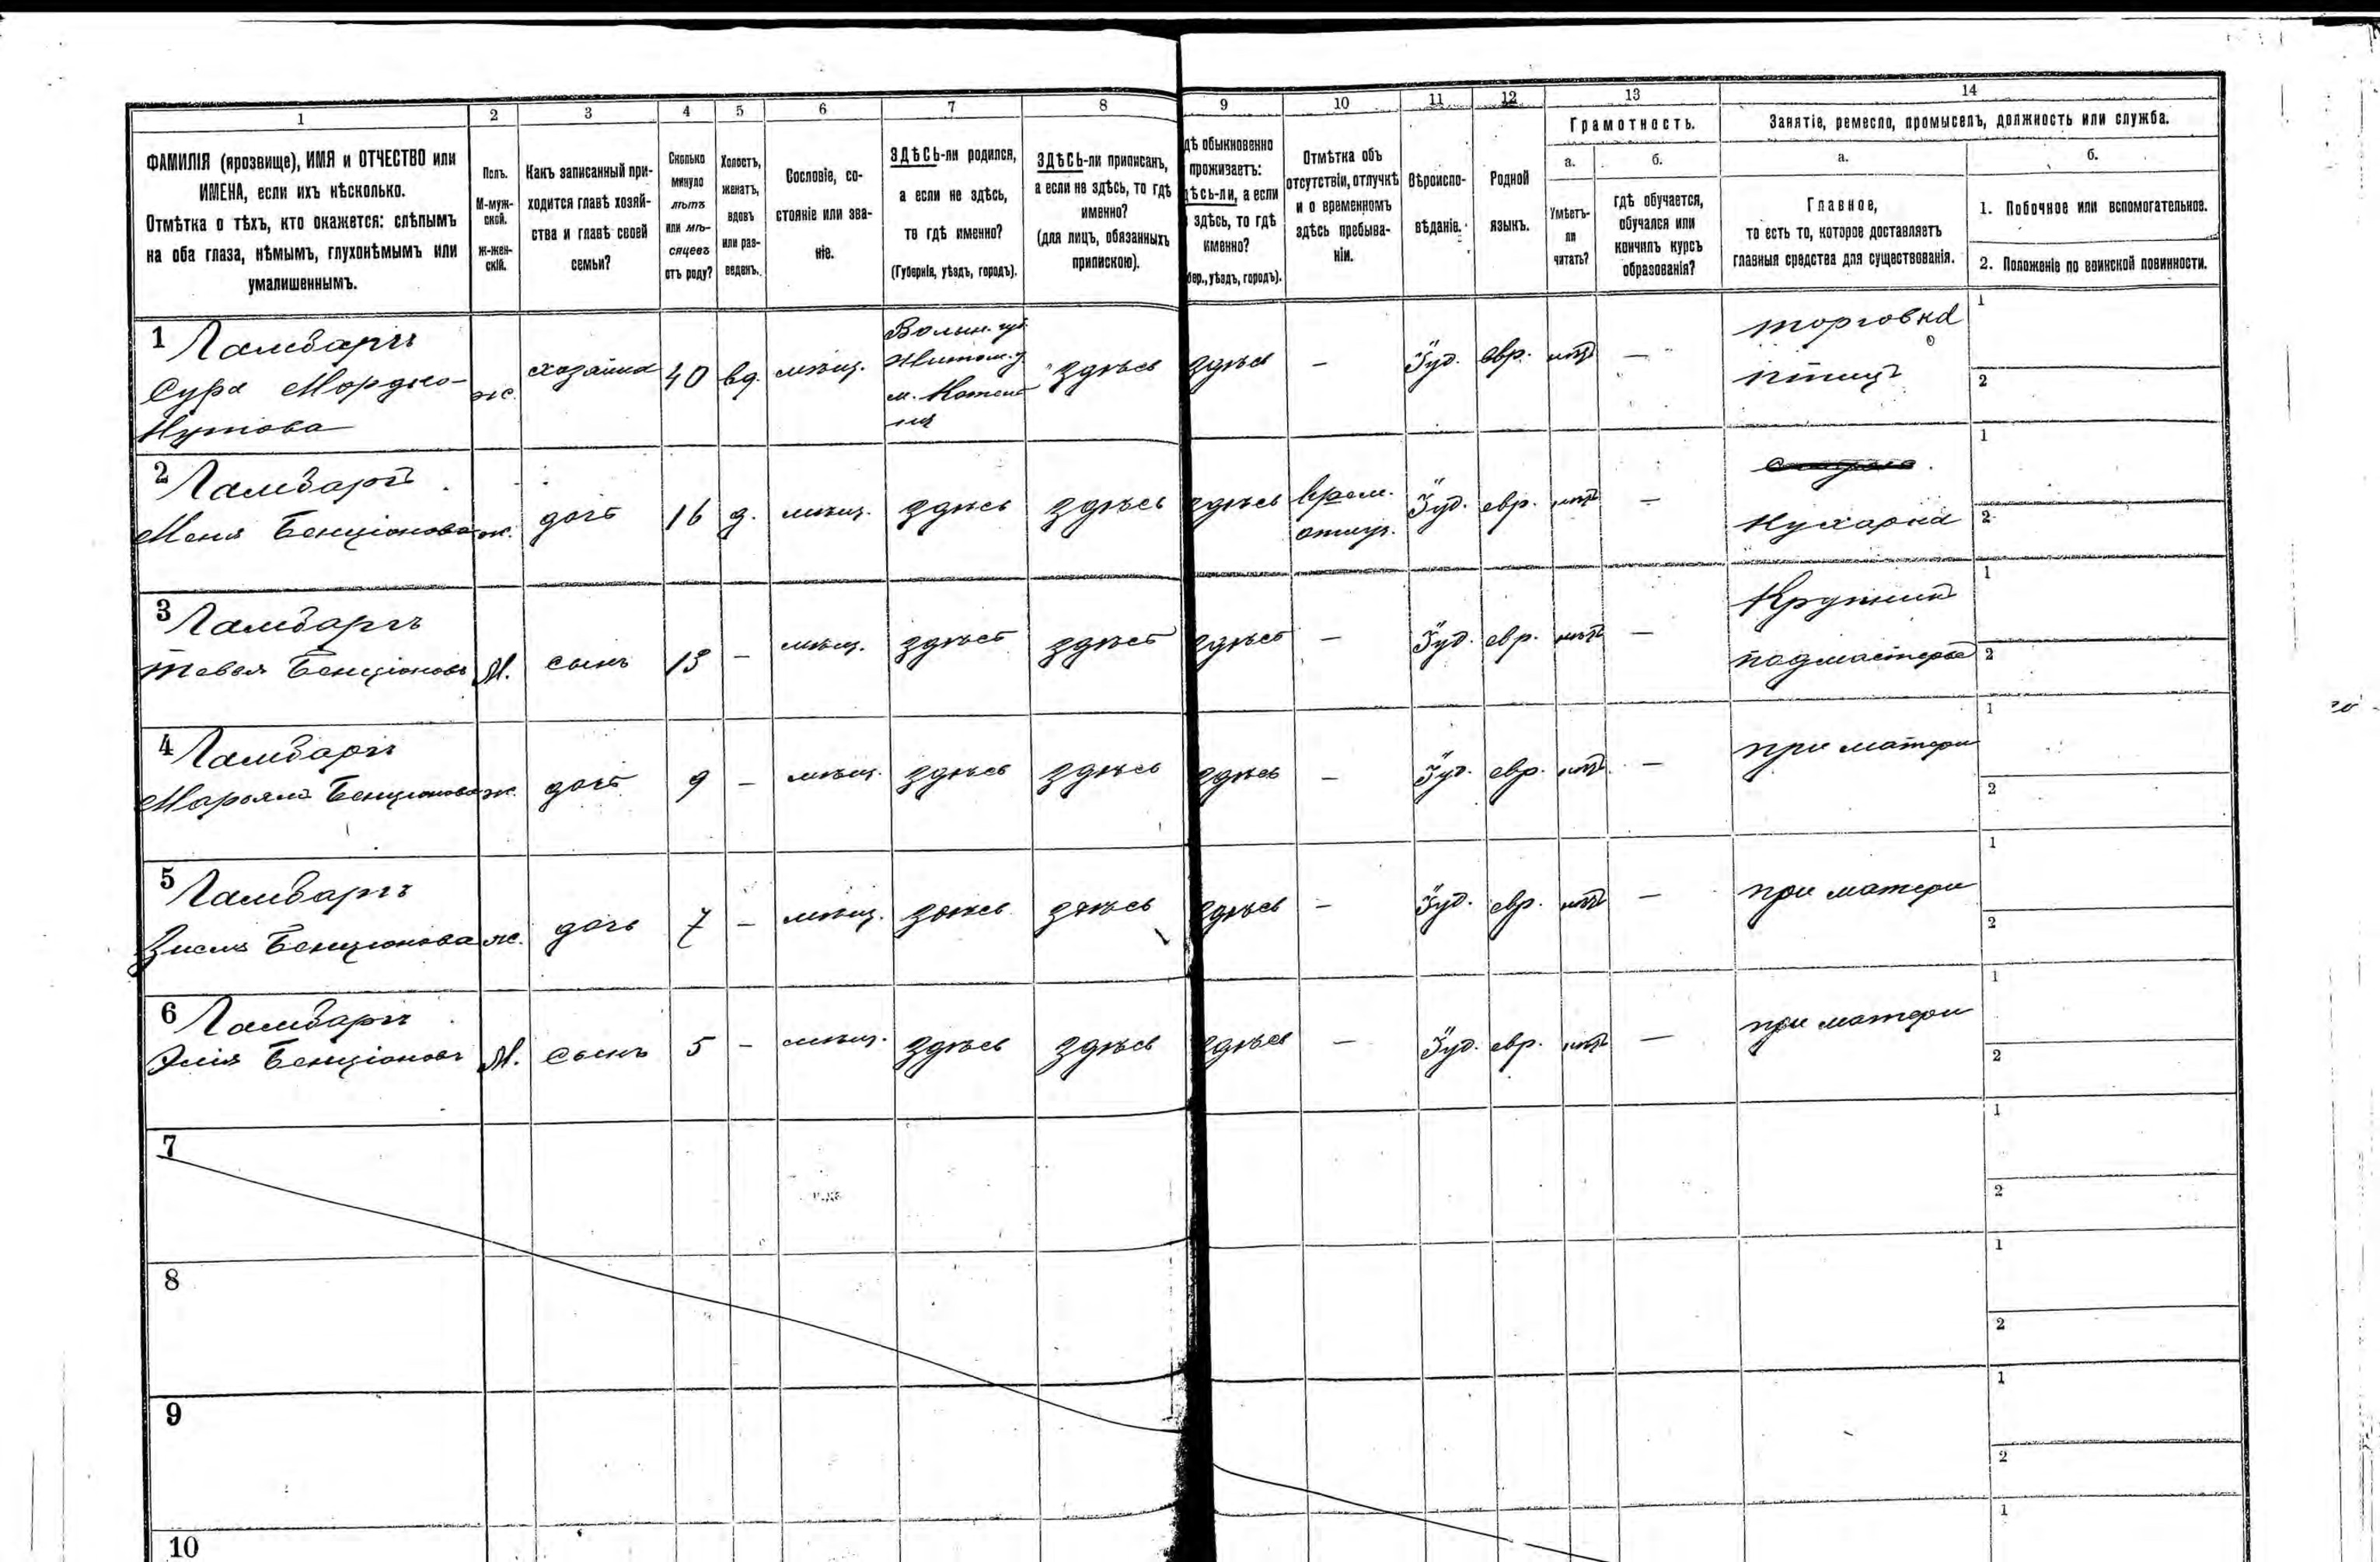 1 2 3 4 5 6 7 8 9 10 11 12 13 14
ФАМИЛІЯ (прозвище), ИМЯ и ОТЧЕСТВО или
ИМЕНА, если ихъ нѣсколько.
Отмѣтка о тѣхъ, кто окажется: слѣпымъ
на оба глаза, нѣмымъ, глухонѣмымъ или
умалишеннымъ.
Полъ.
М-муж-
ской.
Ж-жен-
скій.
Какъ записанный при-
ходится главѣ хозяй-
ства и главѣ своей
семьи?
Сколько
минуло
лѣтъ
или мѣ-
сяцевъ
отъ роду?
Холостъ,
женатъ,
вдовъ
или раз-
веденъ.
Сословіе, со-
стояніе или зва-
ніе.
ЗДѢСЬ-ли родился,
а если не здѣсь,
то гдѣ именно?
(Губернія, уѣздъ, городъ).
ЗДѢСЬ-ли приписанъ,
а если не здѣсь, то гдѣ
именно?
(для лицъ, обязанныхъ
припискою).
дѣ обыкновенно
проживаетъ:
дѣсь-ли, а если
здѣсь, то гдѣ
именно?
бер., уѣздъ, городъ).
Отмѣтка объ
отсутствіи, отлучкѣ
и о временномъ
здѣсь пребыва-
ніи.
Вѣроиспо-
вѣданіе.
Родной
языкъ.
Грамотность.
а.
Умѣетъ-
ли
читать?
б.
гдѣ обучается,
обучался или
кончилъ курсъ
образованія?
Занятіе, ремесло, промыселъ, должность или служба.
а.
Главное,
то есть то, которое доставляетъ
главныя средства для существованія.
б.
1. Побочное или вспомогательное.
2. Положеніе по воинской повинности.
1 Ламбаргъ
Сура Мордко-
Нутова
ж.
хозяйка
40
вд.
мѣщ.
Волын. губ.
Житом. у.
м.
здѣсь
здѣсь
—
Іуд.
евр.
нѣтъ
—
торговка
птицъ
1
2
2 Ламбаргъ
Меня Бенціонова
ж.
дочь
16
д.
мѣщ.
здѣсь
здѣсь
здѣсь
врем.
отлуч.
Іуд.
евр.
нѣтъ
—
Кухарка
1
2
3 Ламбаргъ
Тевья Бенціоновъ
М.
сынъ
13
—
мѣщ.
здѣсь
здѣсь
здѣсь
—
Іуд.
евр.
нѣтъ
—
подмастерье
1
2
4 Ламбаргъ
Марьяма Бенціонова
ж.
дочь
9
—
мѣщ.
здѣсь
здѣсь
здѣсь
—
Іуд.
евр.
нѣтъ
—
при матери
1
2
5 Ламбаргъ
Зисля Бенціонова
ж.
дочь
7
—
мѣщ.
здѣсь
здѣсь
здѣсь
—
Іуд.
евр.
нѣтъ
—
при матери
1
2
6 Ламбаргъ
Элія Бенціоновъ
М.
сынъ
5
—
мѣщ.
здѣсь
здѣсь
здѣсь
—
Іуд.
евр.
нѣтъ
—
при матери
1
2
7
1
2
8
1
2
9
1
2
10
1